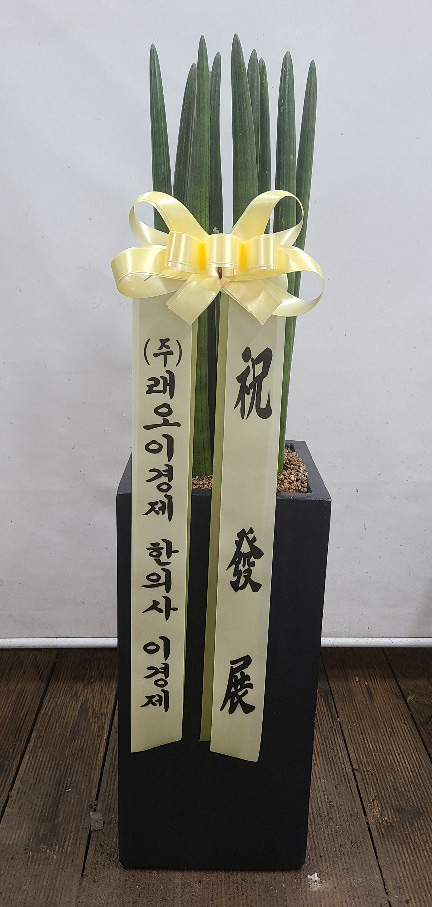 (주)래오이경제 한의사 이경제
祝發展